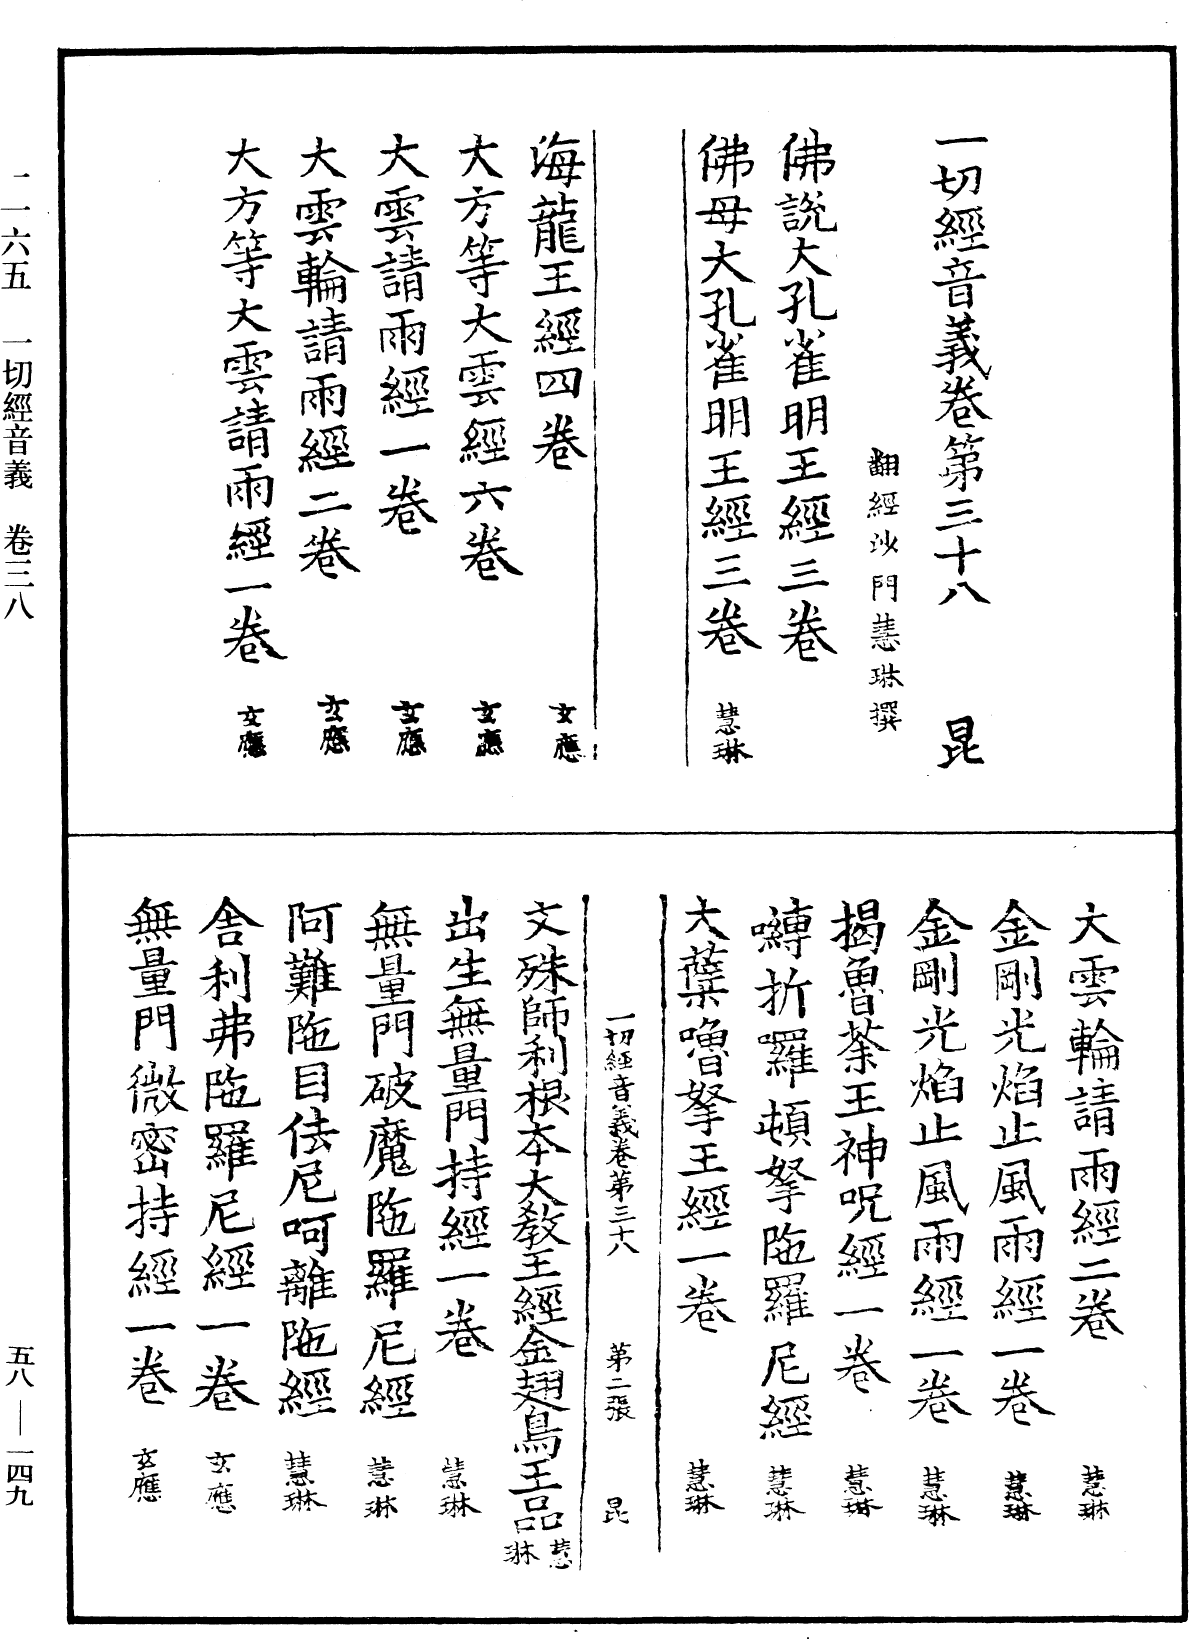 一切經音義卷第三十八 昆
翻經沙門慧琳撰
佛說大孔雀明王經三卷
佛母大孔雀明王經三卷 慧琳
海龍王經四卷 玄應
大方等大雲經六卷 玄應
大雲請雨經一卷 玄應
大雲輪請雨經二卷 玄應
大方等大雲請雨經一卷 玄應
大雲輪請雨經二卷 慧琳
金剛光焰止風雨經一卷 慧琳
金剛光焰止風雨經一卷 慧琳
揭魯荼王神呪經一卷 慧琳
嚩折囉頓拏陁羅尼經 慧琳
大蘗嚕拏王經一卷 慧琳
一切經音義卷第三十八 第二張 昆
文殊師利根本大教王經金翅鳥王品 慧琳
出生無量門持經一卷 慧琳
無量門破魔陁羅尼經 慧琳
阿難陁目佉尼呵離陁經 慧琳
舍利弗陁羅尼經一卷 玄應
無量門微密持經一卷 玄應
二一六五 一切經音義 卷三八
五八—一四九